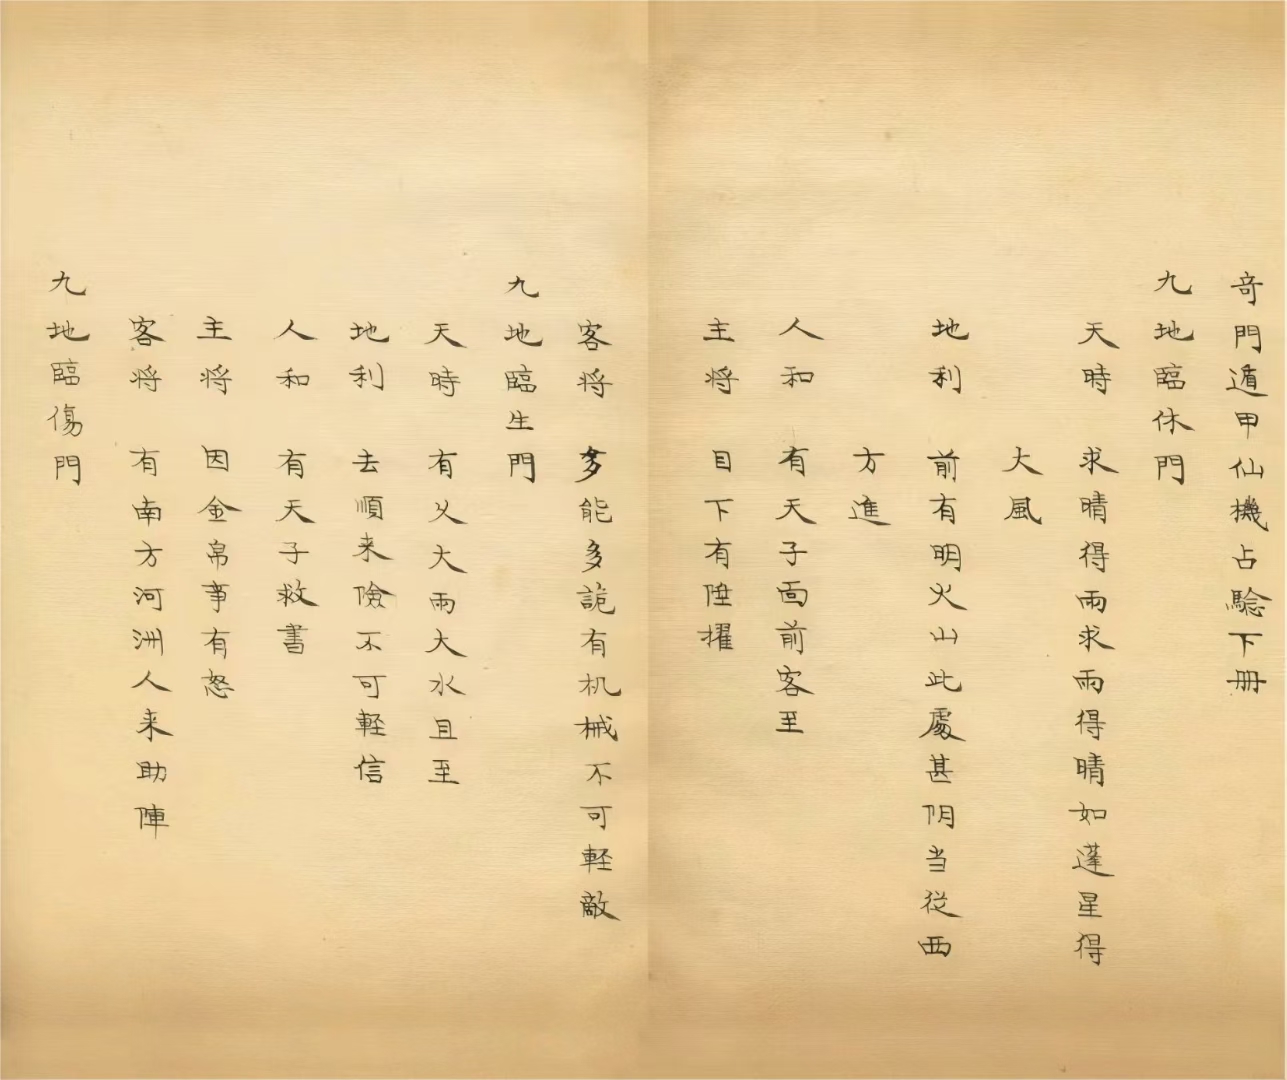 奇門遁甲仙機占驗下冊
九地臨休門
天時 求晴得雨求雨得晴如蓬星得
大風
地利 前有明火山此處甚阴当從西
方進
人和 有天子面前客至
主将 目下有陞擢
客将 多能多詭有机械不可軽敵
九地臨生門
天時 有火大雨大水且至
地利 去順来儉不可軽信
人和 有天子救書
主将 因金帛事有怒
客将 有南方河洲人来助陣
九地臨傷門